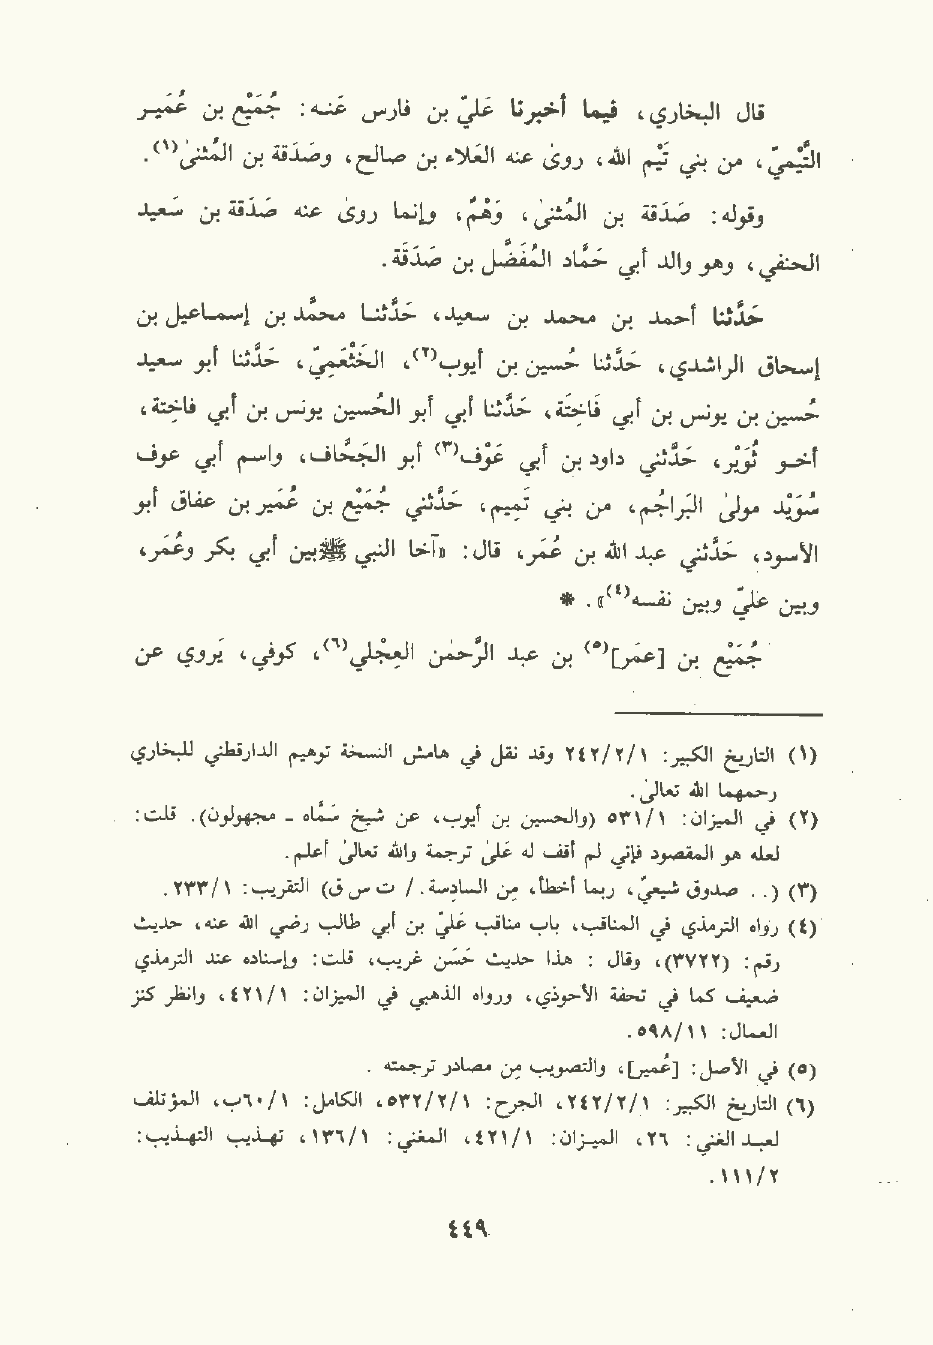 قال البخاري، فيما أخبرنا عَليّ بن فارس عَنـه: جُمَيْع بن عُمَيـر
التَّيْميّ، من بني تَيْم الله، روىٰ عنه العَلاء بن صـالح، وصَدَقة بن المُثنىٰ(١).
وقوله: صَدَقة بن المُثنىٰ، وَهْمٌ، وإنما روىٰ عنه صَدَقة بن سَعيد
الحنفي، وهو والد أبي حَمَّاد المُفَضَّل بن صَدَقة.
حَدَّثنا أحمد بن محمد بن سعيد، حَدَّثنـا محمَّد بن إسمـاعيل بن
إسحاق الراشدي، حَدَّثنا حُسين بن أيوب(٢)، الخَثْعَمِيّ، حَدَّثنا أبو سعيد
حُسين بن يونس بن أبي فَاخِتَة، حَدَّثنا أبي أبو الحُسين يونس بن أبي فاخِتة،
أخـو ثُوَيْر، حَدَّثني داود بن أبي عَوْف(٣) أبو الجَحَّاف، واسم أبي عوف
سُوَيْد مولىٰ البَراجُم، من بني تَمِيم، حَدَّثني جُمَيْع بن عُمَير بن عفاق أبو
الأسـود، حَدَّثني عبد الله بن عُمَر، قال: «آخا النبي ﷺ بين أبي بكر وعُمَر،
وبين عليّ وبين نفسه(٤)». *
جُمَيْع بن [عمَر](٥) بن عبد الرَّحمٰن العِجْلي(٦)، كوفي، يَروي عن
(١) التاريخ الكبير: ٢٤٢/٢/١ وقد نقل في هامش النسخة توهيم الدارقطني للبخاري
رحمهما الله تعالىٰ.
(٢) في الميزان: ٥٣١/١ (والحسين بن أيوب، عن شيخ سَمَّاه - مجهولون). قلت:
لعله هو المقصود فإني لم أقف له عَلىٰ ترجمة والله تعالىٰ أعلم.
(٣) (.. صدوق شيعيّ، ربما أخطأ، من السادسة. / ت س ق) التقريب: ٢٣٣/١.
(٤) رواه الترمذي في المناقب، باب مناقب عَليّ بن أبي طالب رضي الله عنه، حديث
رقم: (٣٧٢٢)، وقال : هذا حديث حَسَن غريب، قلت: وإسناده عند الترمذي
ضعيف كما في تحفة الأحوذي، ورواه الذهبي في الميزان: ٤٢١/١، وانظر كنز
العمال: ٥٩٨/١١.
(٥) في الأصل: [عُمير]، والتصويب من مصادر ترجمته .
(٦) التاريخ الكبير: ٢٤٢/٢/١، الجرح: ٥٣٢/٢/١، الكامل: ٦٠/١ب، المؤتلف
لعبـد الغني: ٢٦، الميـزان: ٤٢١/١، المغني: ١٣٦/١، تهـذيب التهـذيب:
١١١/٢.
٤٤٩